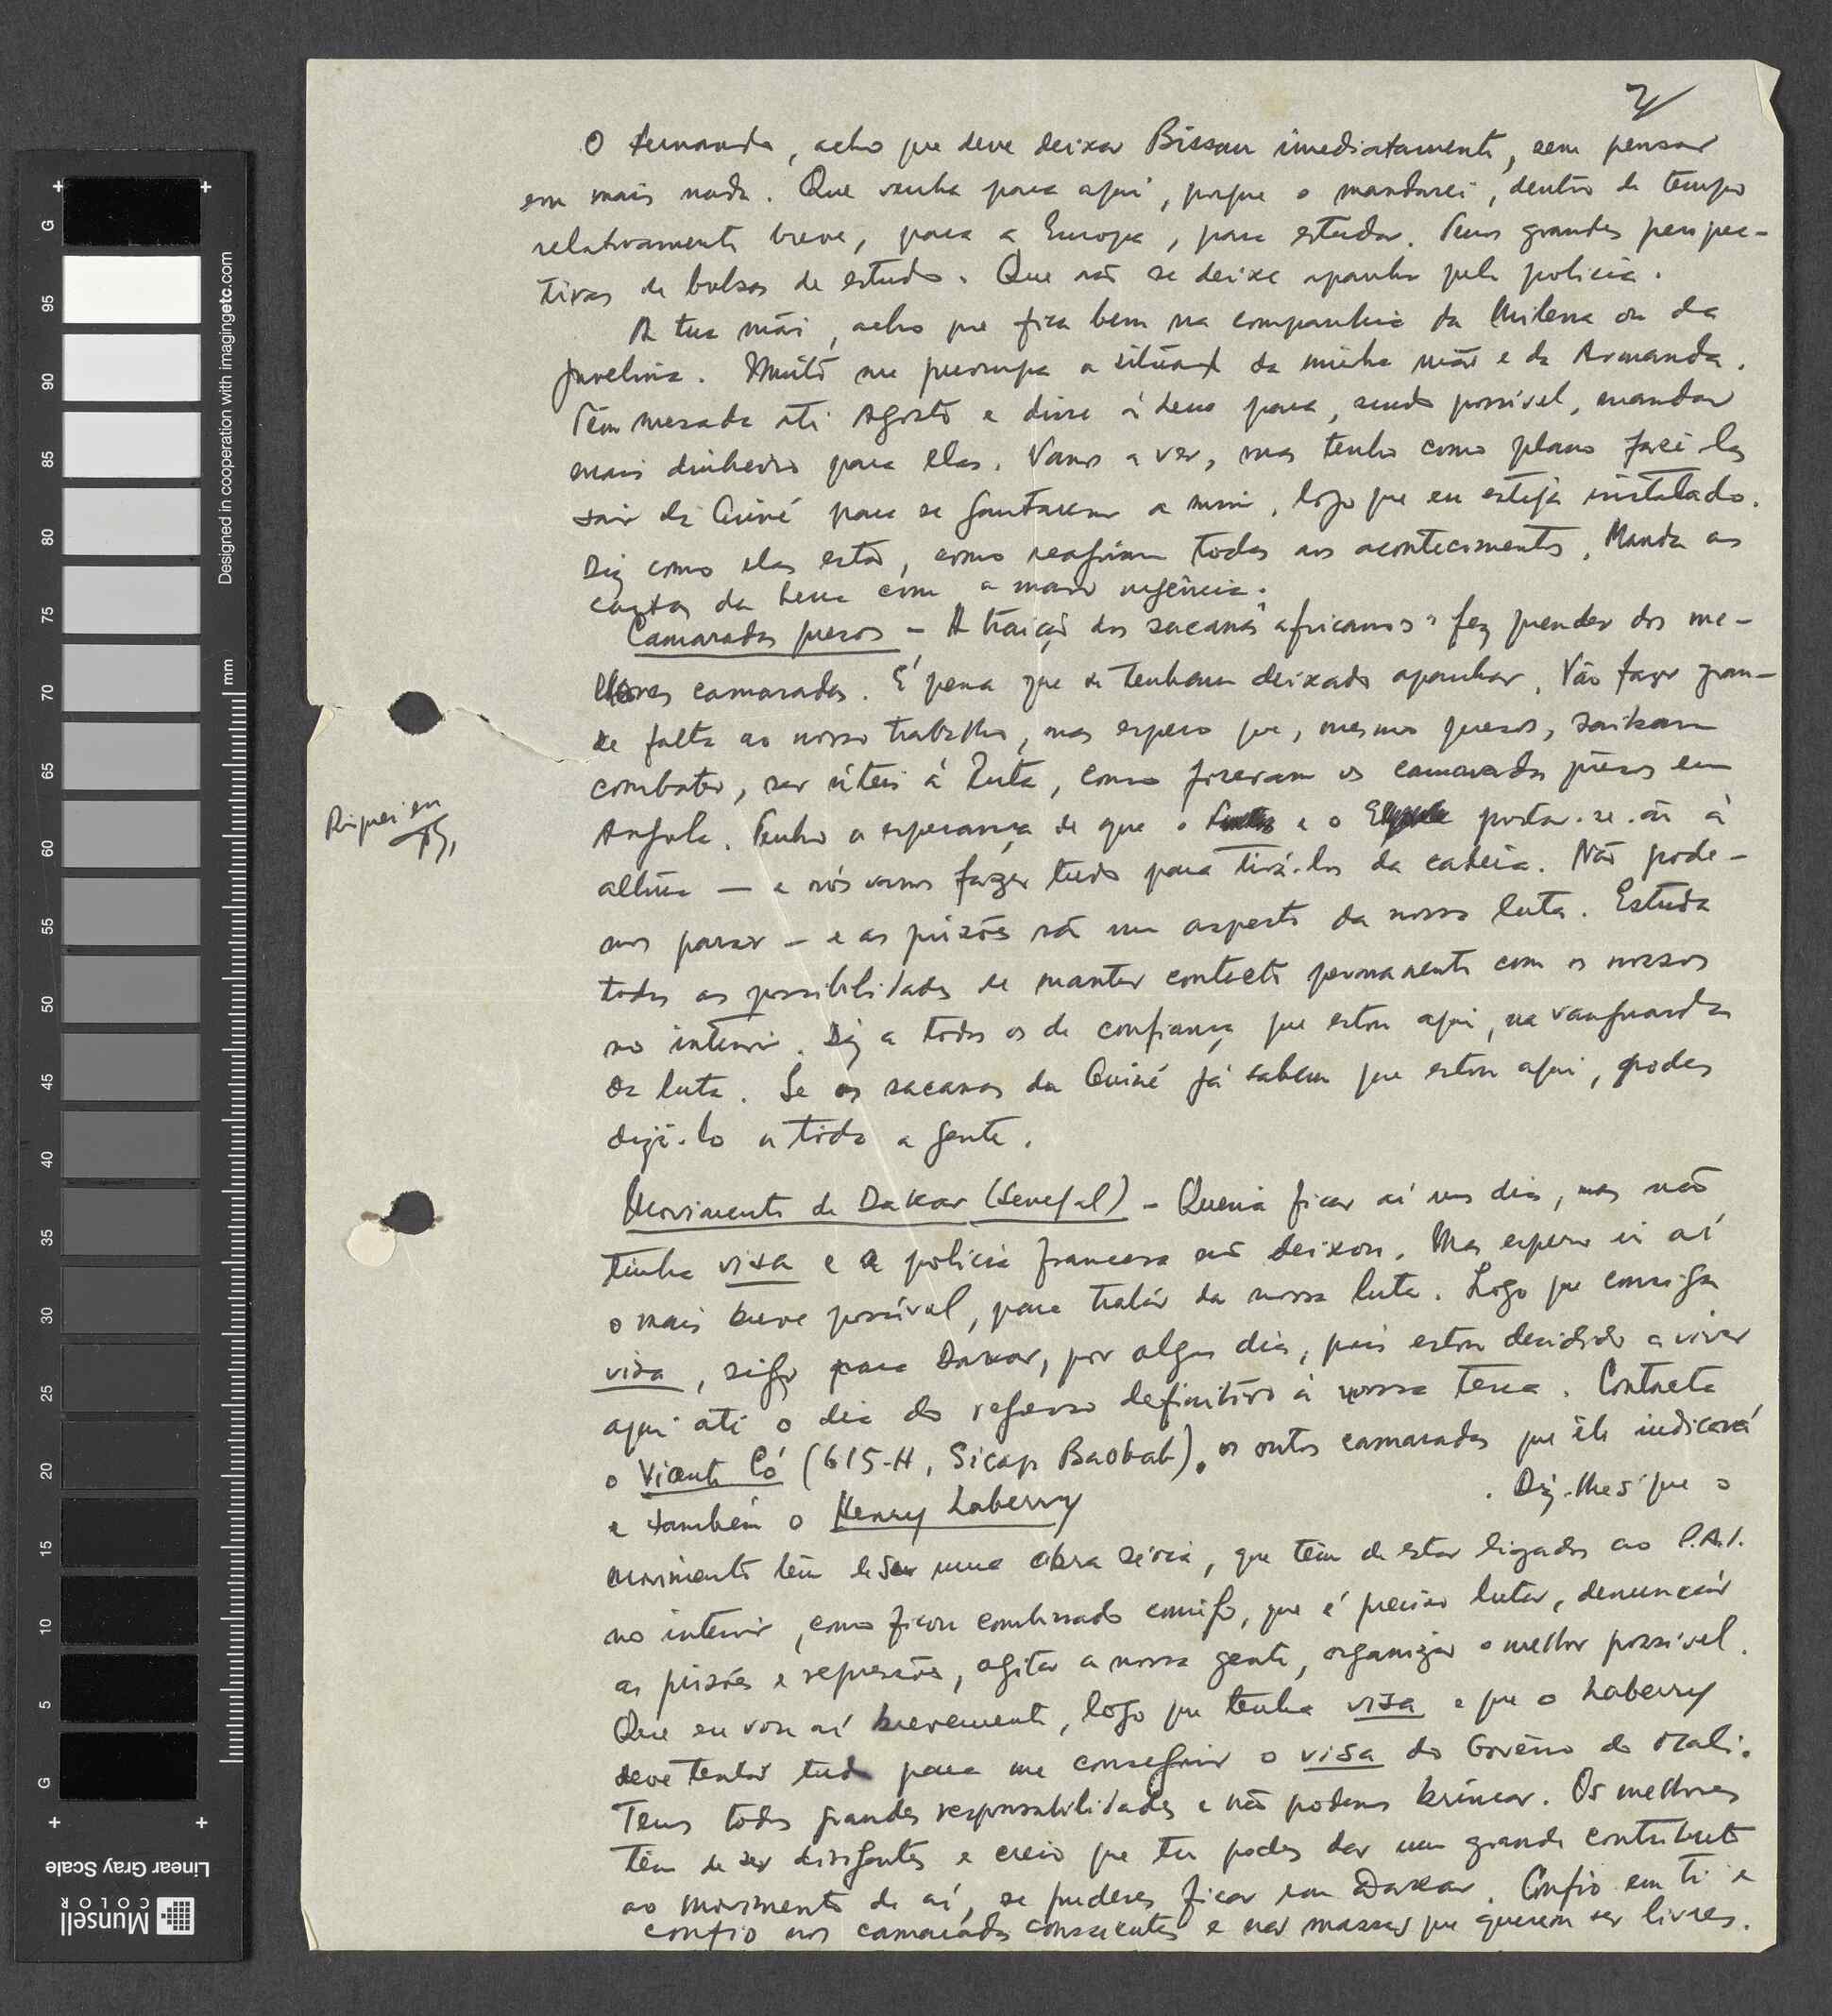 2
O Fernando, acho que deve deixar Bissau imediatamente, sem pensar
em mais nada. Que venha para aqui, porque o mandarei, dentro de tempo
relativamente breve, para a Europa, para estudar. Temos grandes perspec-
tivas de bolsas de estudo. Que não se deixe apanhar pela polícia.
A tua mãi, acho que fica bem na companhia da Milena ou da
Juvelina. Muito me preocupa a situação da minha mãi e da Armanda.
Têm mesada até Agosto e disse à Lena para, sendo possível, mandar
mais dinheiro para elas. Vamos a ver, mas tenho como plano fazê-las
sair da Guiné para se juntarem a mim, logo que eu esteja instalado.
Diz como elas estão, como reagiram todas aos acontecimentos. Manda as
cartas da Lena com a maior urgência.
Camaradas presos - A traição dos sacanas "africanos" fez prender dos me-
lhores camaradas. É pena que se tenham deixado apanhar. Vão fazer gran-
de falta ao nosso trabalho, mas espero que, mesmo presos, saibam
combater, ser úteis à luta, como fizeram os camaradas presos em
Angola. Tenho a esperança de que o e o portar-se-ão à
Risquei eu
altura — e nós vamos fazer tudo para tirá-los da cadeia. Não pode-
mos parar - e as prisões são um aspecto da nossa luta. Estuda
todas as possibilidades de manter contacto permanente com os nossos
no interior. Diz a todos os de confiança que estou aqui, na vanguarda
da luta. Se os sacanas da Guiné já sabem que estou aqui, podes
dizê-lo a toda a gente.
Movimento de Dakar (Senegal) - Queria ficar aí uns dias, mas não
tinha visa e a polícia francesa não deixou. Mas espero ir aí
o mais breve possível, para tratar da nossa luta. Logo que consiga
visa, sigo para Dakar, por alguns dias, pois estou decidido a viver
aqui até o dia do regresso definitivo à nossa terra. Contacta
o Vicente Có (615-H, Sicap Baobab), os outros camaradas que êle indicará
e também o Henry Labery . Diz-lhes que o
movimento têm de ser uma obra séria, que têm de estar ligados ao P.A.I.
no interior, como ficou combinado comigo, que é preciso lutar, denunciar
as prisões e repressões, agitar a nossa gente, organizar o melhor possível.
Que eu vou aí brevemente, logo que tenha visa e que o Labery
deve tentar tudo para me conseguir o visa do Govêrno do Mali.
Temos todos grandes responsabilidades e não podemos brincar. Os melhores
têm de ser dirigentes e creio que tu podes dar um grande contributo
ao movimento de aí, se puderes ficar em Dakar. Confio em ti e
confio nos camaradas conscientes e nas massas que querem ser livres.
G 95 90 85 80 75 70 65 60 55 50 45 40 35 30 25 20 15 10 5 G
mm
Designed in cooperation with imagingetc.com
Linear Gray Scale
Munsell
COLOR